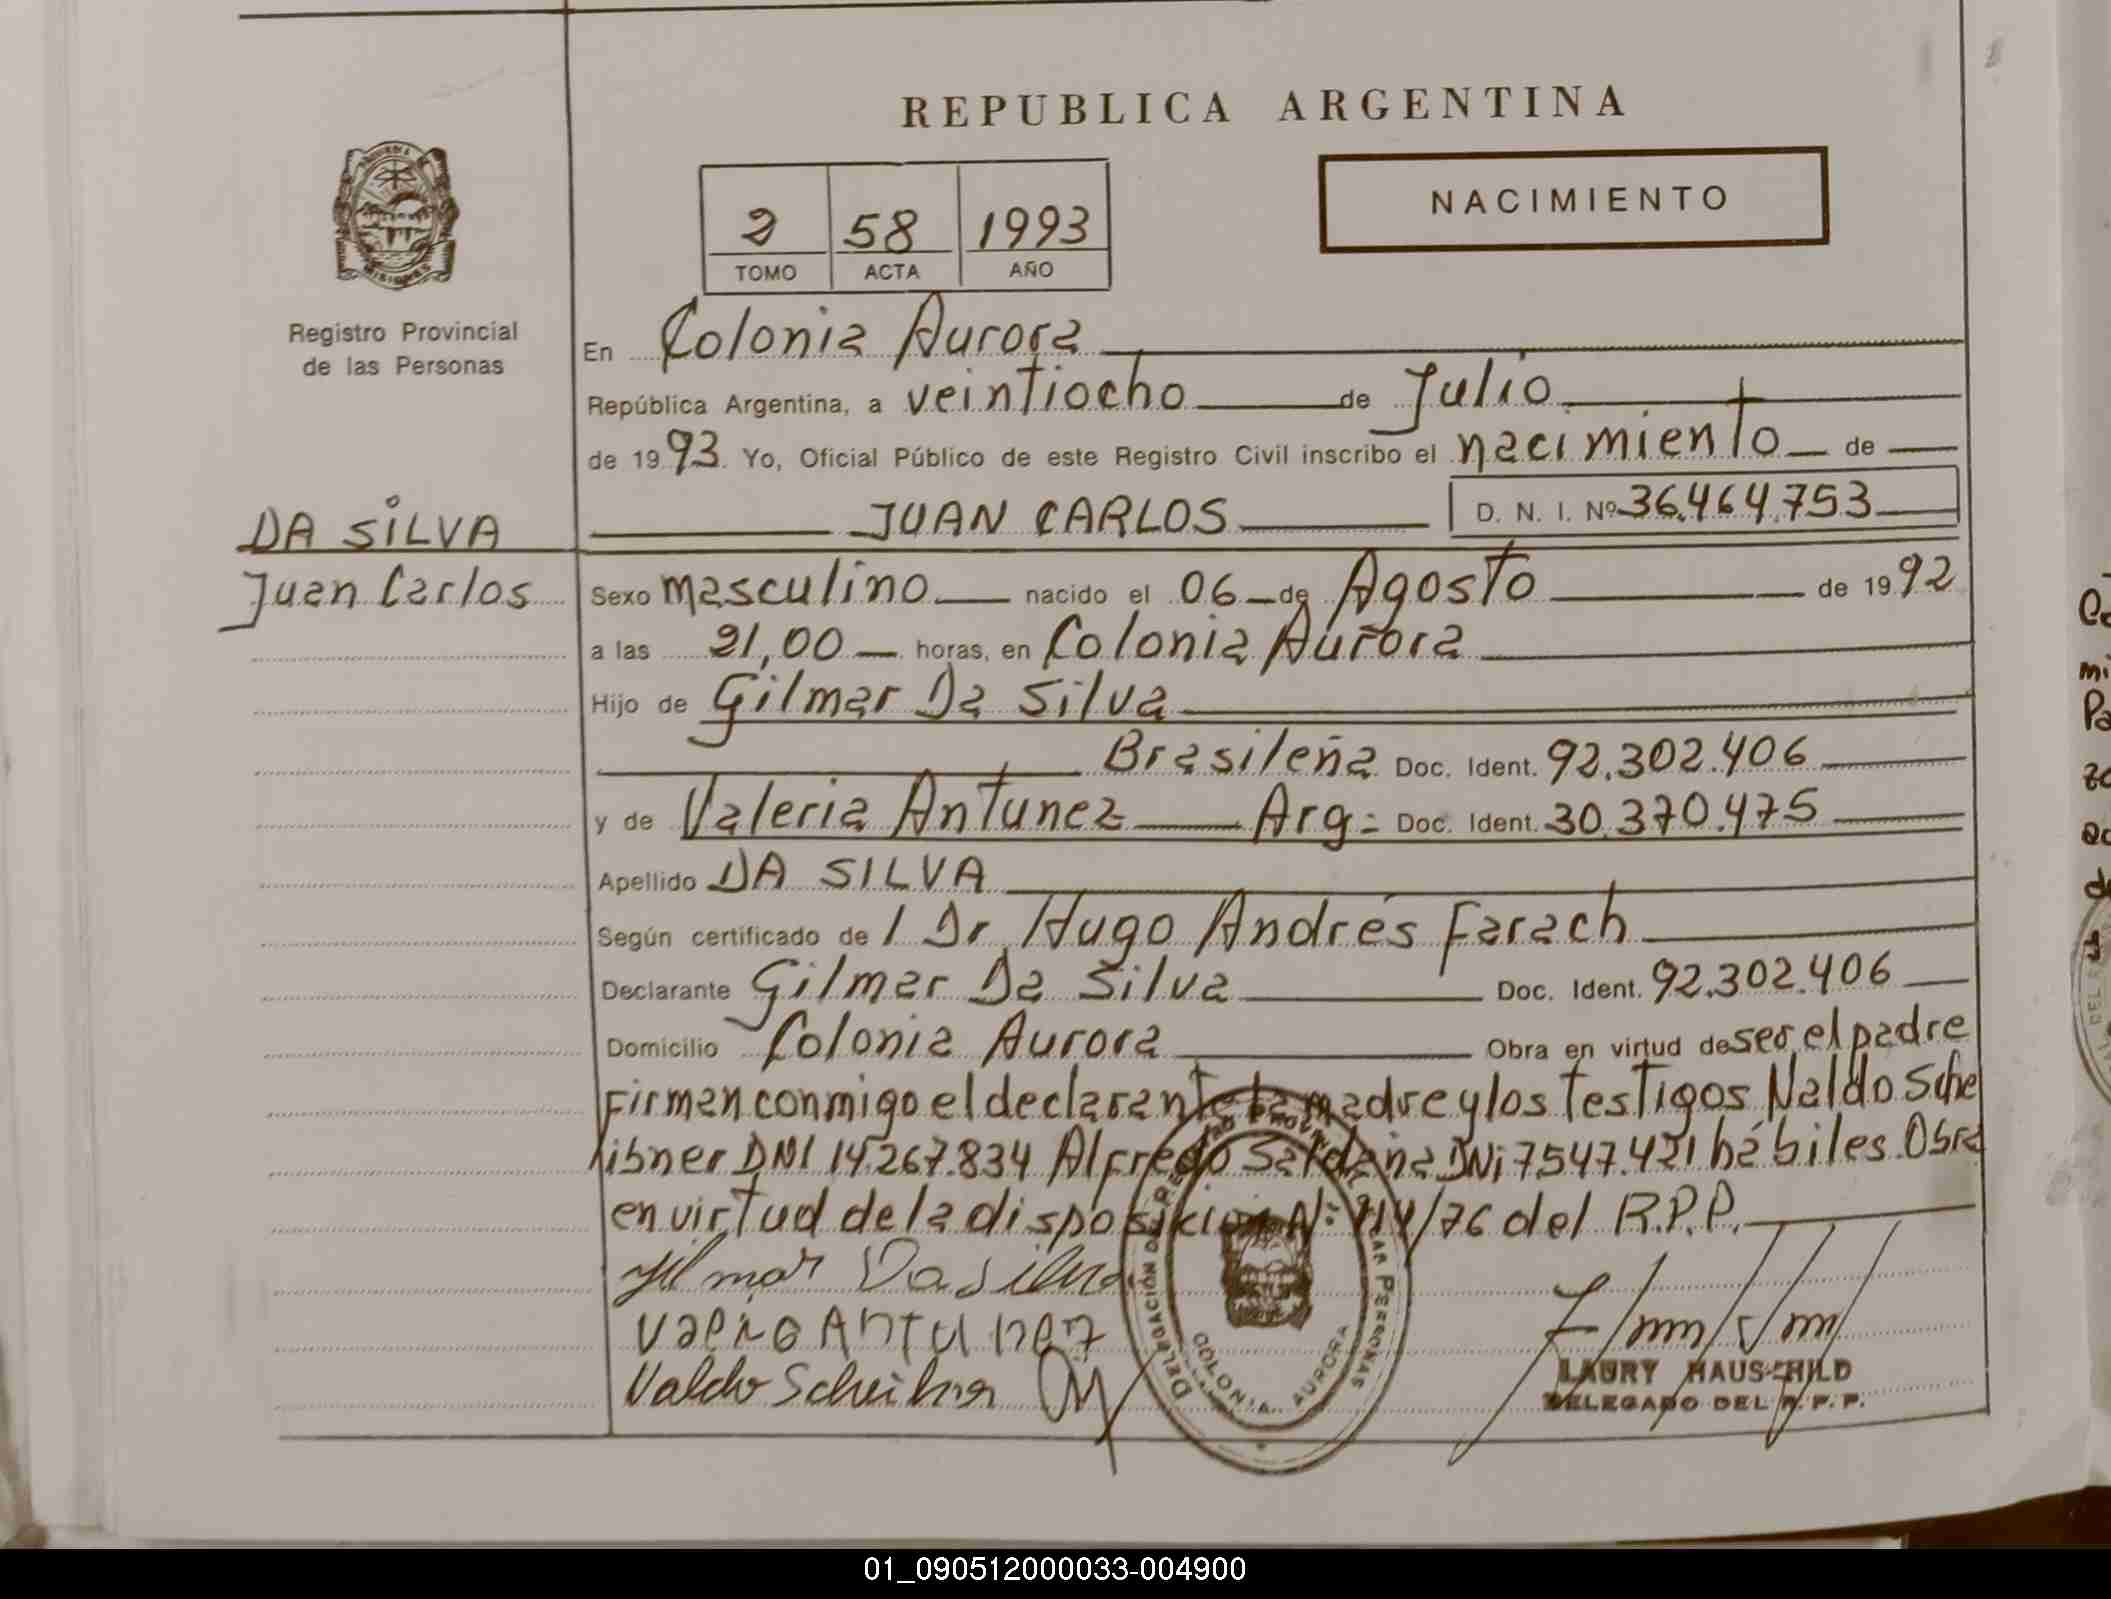 REPUBLICA ARGENTINA
NACIMIENTO
2 58 1993
TOMO ACTA AÑO
Registro Provincial
de las Personas
En Colonia Aurora
República Argentina, a veintiocho de Julio
de 1993. Yo, Oficial Público de este Registro Civil inscribo el nacimiento de
DA SILVA
Juan Carlos
JUAN CARLOS D. N. I. Nº 36.464.753
Sexo masculino nacido el 06 de Agosto de 1992
a las 21,00 horas, en Colonia Aurora
Hijo de Gilmar Da Silva
Brasileña Doc. Ident. 92.302.406
y de Valeria Antunez Arg= Doc. Ident. 30.370.475
Apellido DA SILVA
Según certificado de / Dr Hugo Andrés Farach
Declarante Gilmar Da Silva Doc. Ident. 92.302.406
Domicilio Colonia Aurora Obra en virtud de ser el padre
Firman conmigo el declarante la madre y los testigos Naldo Sche
ibner DNI 14.267.834 Alfredo Saldaña DNi 7547.421 hábiles. Obra
en virtud de la disposicion Nº /76 del R.P.P.
Gilmar Da Silva
Valeria Antunez
Naldo Scheibner
DELEGACIÓN DEL REGISTRO PROVINCIAL DE LAS PERSONAS
COLONIA AURORA
LAURY HAUSCHILD
DELEGADO DEL R.P.P.
01_090512000033-004900